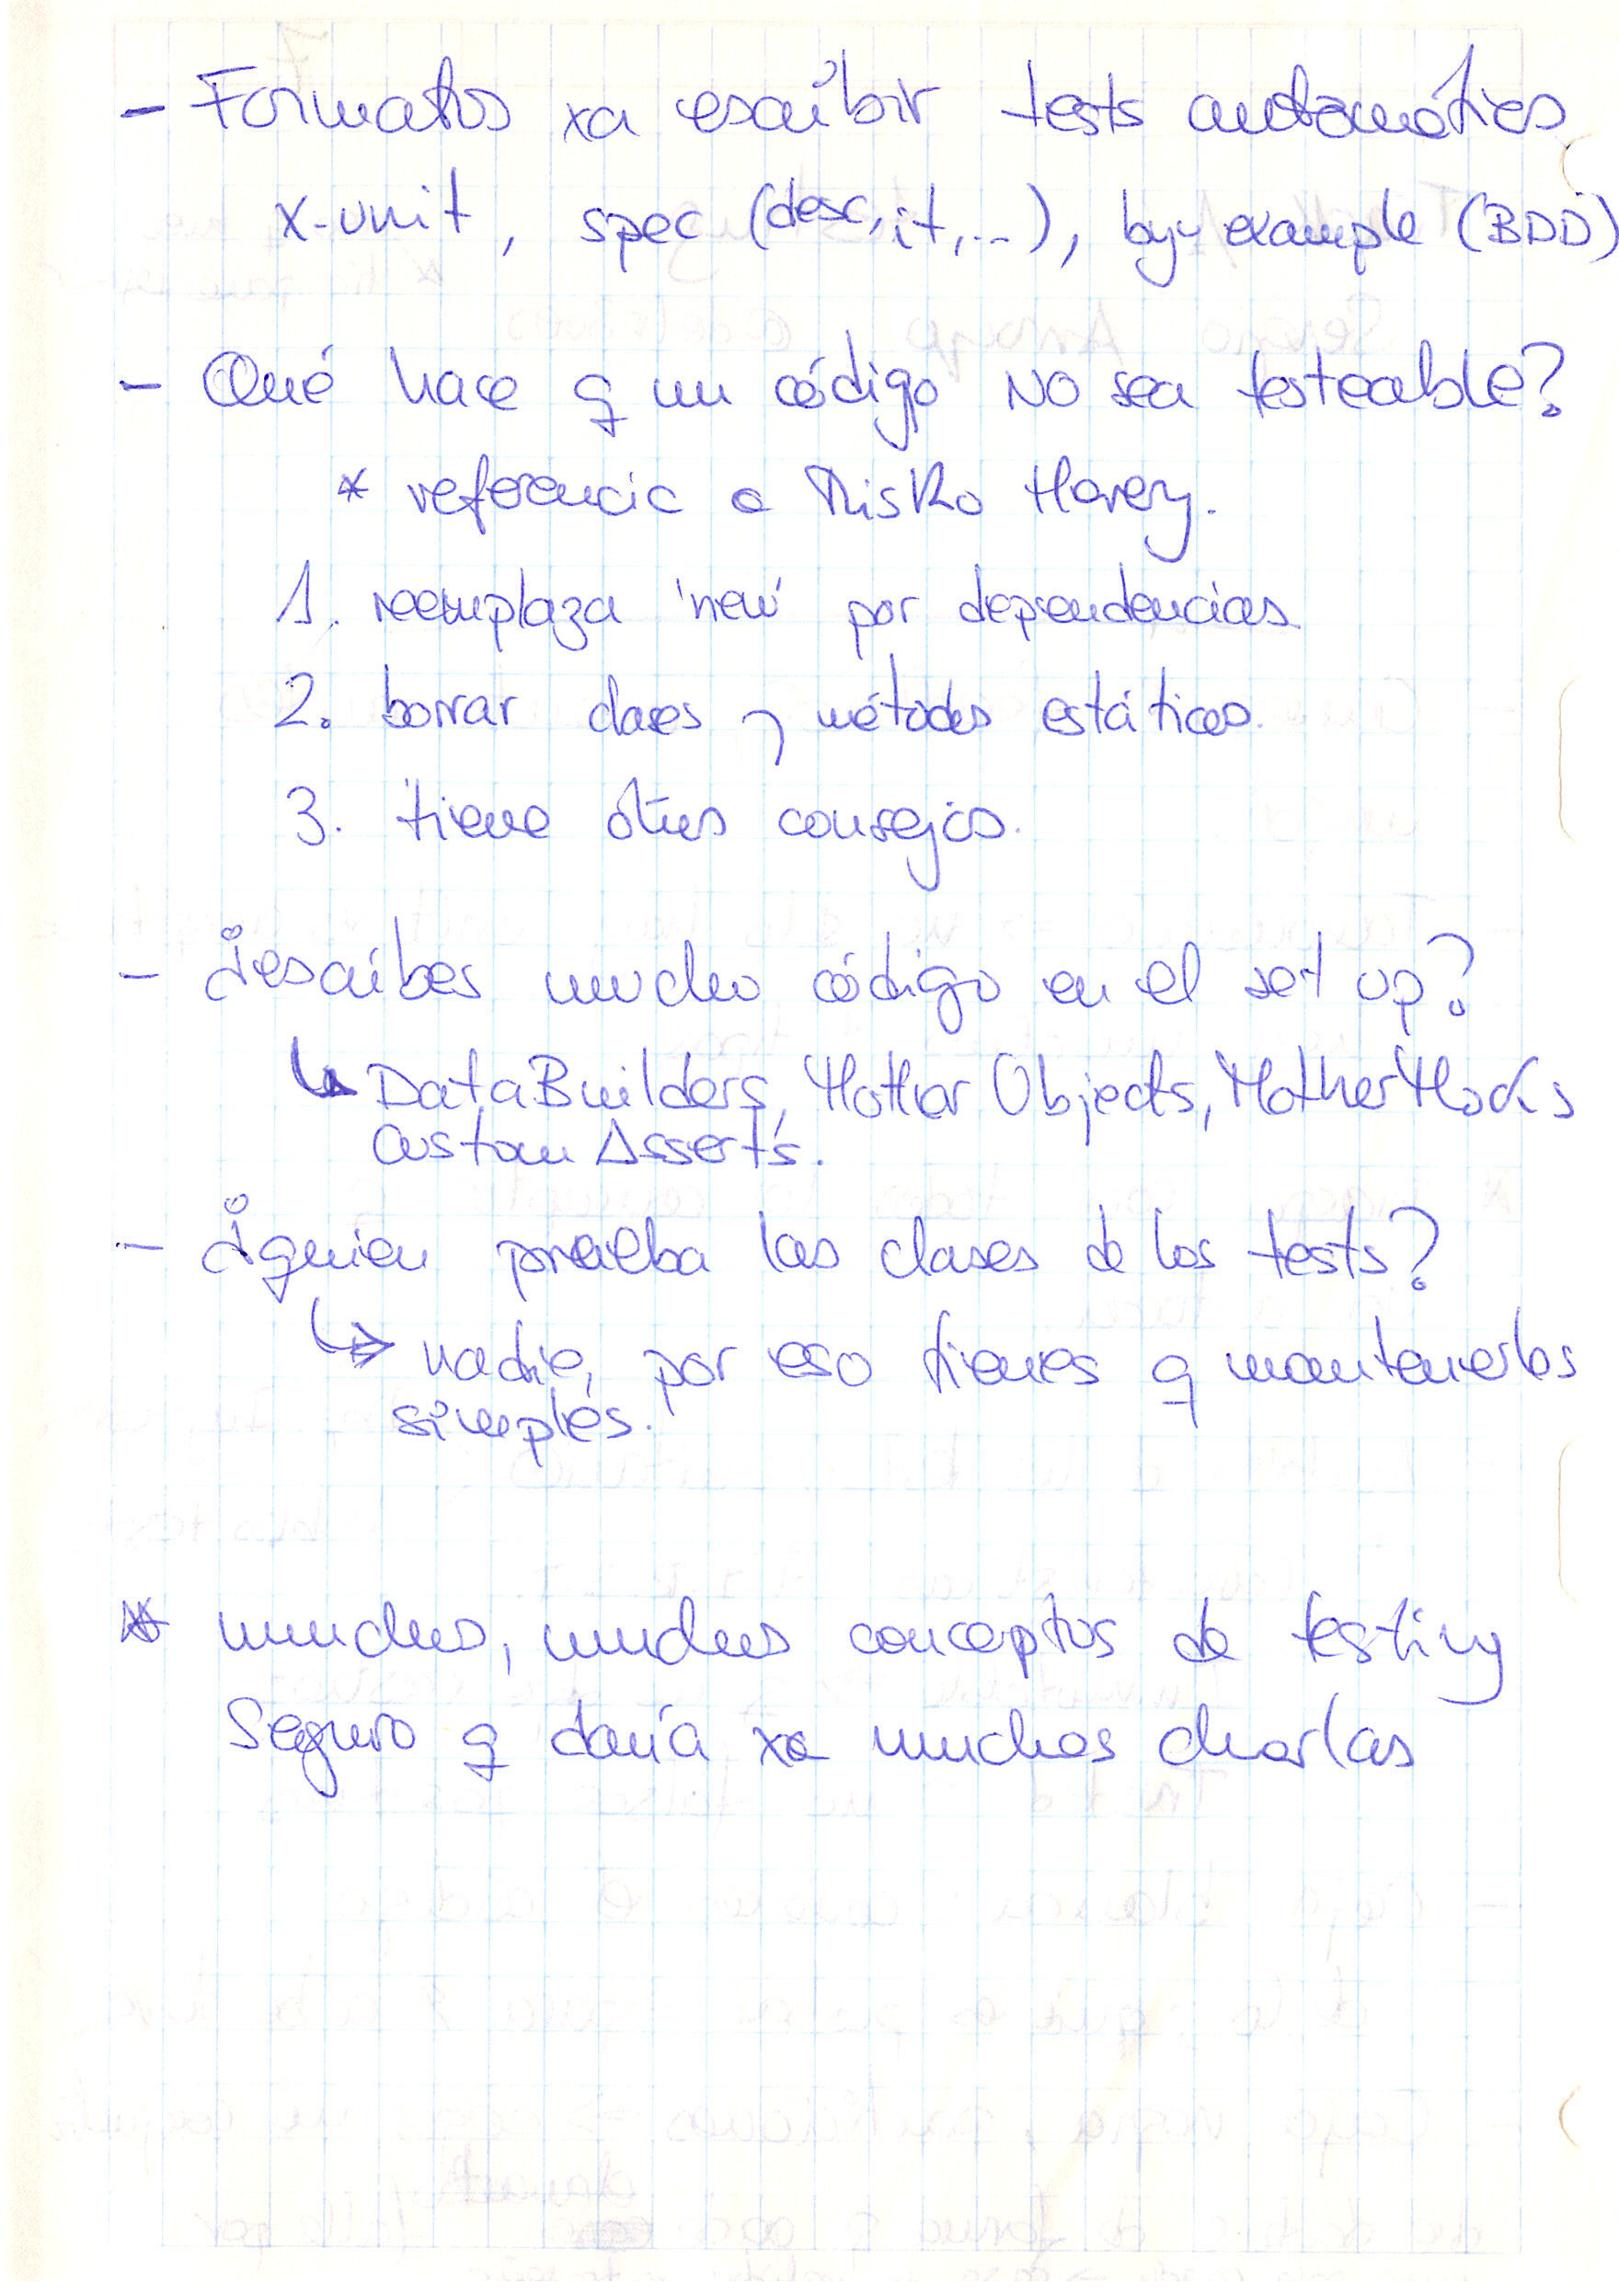 - Formatos xa escribir tests automáticos
x-unit, spec (desc, it, ...), by-example (BDD)
- Qué hace q un código NO sea testeable?
* referencia a Misko Hevery.
1. reemplaza 'new' por dependencias.
2. borrar clases y métodos estáticos.
3. tiene otros consejos.
- ¿escribes mucho código en el set up?
↳ DataBuilders, Mother Objects, MotherMocks
Custom Asserts.
- ¿quien prueba las clases de los tests?
↳ nadie, por eso tienes q mantenerlos
simples.
* muchos, muchos conceptos de testing
Seguro q daría xa muchas charlas